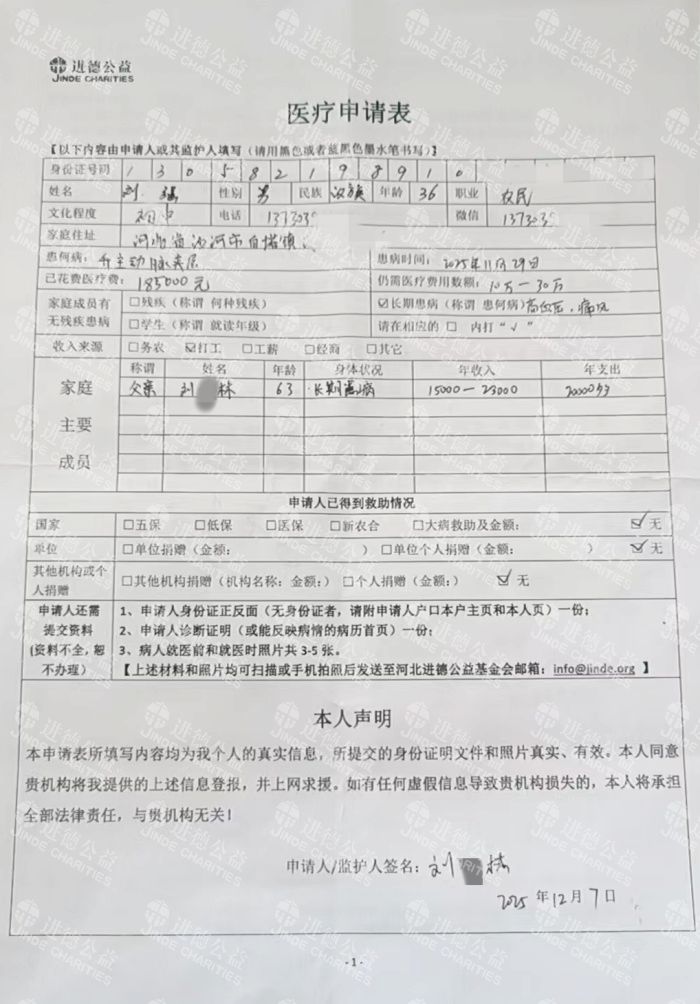 进德公益
JINDE CHARITIES
医疗申请表
【以下内容由申请人或其监护人填写（请用黑色或者蓝黑色墨水笔书写）】
身份证号码 1 3 0 5 8 2 1 9 8 9 1 0
姓名 刘 性别 男 民族 汉族 年龄 36 职业 农民
文化程度 初中 电话 137303 微信 137303
家庭住址 河北省沙河市白塔镇
患何病： 升主动脉夹层 患病时间：2025年11月29日
已花费医疗费： 185000元 仍需医疗费用数额：10万—30万
家庭成员有无残疾患病 □残疾（称谓 何种残疾） ☑长期患病（称谓 患何病）高血压，痛风
□学生（称谓 就读年级） 请在相应的 □ 内打“√”
收入来源 □务农 ☑打工 □工薪 □经商 □其它
家庭主要成员 称谓 姓名 年龄 身体状况 年收入 年支出
父亲 刘 林 63 长期患病 15000—23000 20000
申请人已得到救助情况
国家 □五保 □低保 □医保 □新农合 □大病救助及金额： ☑无
单位 □单位捐赠（金额： ） □单位个人捐赠（金额： ） ☑无
其他机构或个人捐赠 □其他机构捐赠（机构名称：金额：） □个人捐赠（金额：） ☑无
申请人还需提交资料（资料不全，恕不办理） 1、申请人身份证正反面（无身份证者，请附申请人户口本户主页和本人页）一份；
2、申请人诊断证明（或能反映病情的病历首页）一份；
3、病人就医前和就医时照片共 3-5 张。
【上述材料和照片均可扫描或手机拍照后发送至河北进德公益基金会邮箱：info@jinde.org 】
本人声明
本申请表所填写内容均为我个人的真实信息，所提交的身份证明文件和照片真实、有效。本人同意
贵机构将我提供的上述信息登报，并上网求援。如有任何虚假信息导致贵机构损失的，本人将承担
全部法律责任，与贵机构无关！
申请人/监护人签名：刘 林
2025 年 12 月 7 日
- 1 -